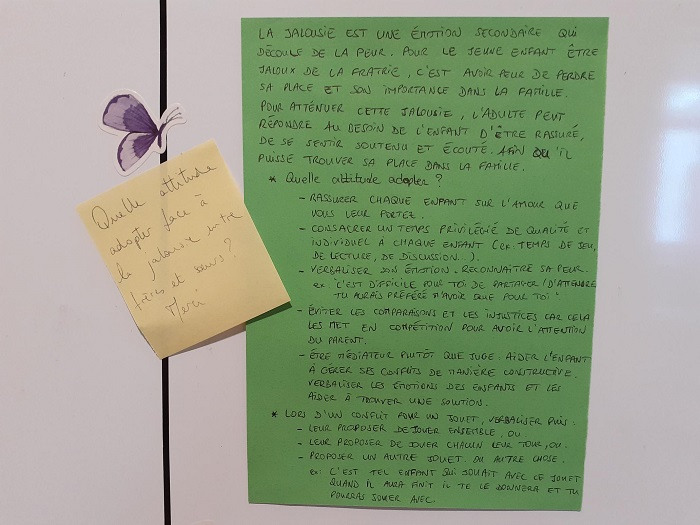 Quelle attitude
adopter face à
la jalousie entre
frères et sœurs?
Merci
LA JALOUSIE EST UNE ÉMOTION SECONDAIRE QUI
DÉCOULE DE LA PEUR. POUR LE JEUNE ENFANT ÊTRE
JALOUX DE LA FRATRIE, C'EST AVOIR PEUR DE PERDRE
SA PLACE ET SON IMPORTANCE DANS LA FAMILLE.
POUR ATTÉNUER CETTE JALOUSIE, L'ADULTE PEUT
RÉPONDRE AU BESOIN DE L'ENFANT D'ÊTRE RASSURÉ,
DE SE SENTIR SOUTENU ET ÉCOUTÉ. AFIN QU'IL
PUISSE TROUVER SA PLACE DANS LA FAMILLE.
* Quelle attitude adopter ?
- RASSURER CHAQUE ENFANT SUR L'AMOUR QUE
VOUS LEUR PORTEZ.
- CONSACRER UN TEMPS PRIVILÉGIÉ DE QUALITÉ ET
INDIVIDUEL À CHAQUE ENFANT (EX: TEMPS DE JEU,
DE LECTURE, DE DISCUSSION...).
- VERBALISER SON ÉMOTION. RECONNAÎTRE SA PEUR.
ex "C'EST DIFFICILE POUR TOI DE PARTAGER / D'ATTENDRE
TU AURAIS PRÉFÉRÉ M'AVOIR QUE POUR TOI"
- ÉVITER LES COMPARAISONS ET LES INJUSTICES CAR CELA
LES MET EN COMPÉTITION POUR AVOIR L'ATTENTION
DU PARENT.
- ÊTRE MÉDIATEUR PLUTÔT QUE JUGE : AIDER L'ENFANT
À GÉRER SES CONFLITS DE MANIÈRE CONSTRUCTIVE.
VERBALISER LES ÉMOTIONS DES ENFANTS ET LES
AIDER À TROUVER UNE SOLUTION.
* LORS D'UN CONFLIT POUR UN JOUET, VERBALISER PUIS :
- LEUR PROPOSER DE JOUER ENSEMBLE, OU
- LEUR PROPOSER DE JOUER CHACUN LEUR TOUR, OU.
- PROPOSER UN AUTRE JOUET OU AUTRE CHOSE.
ex: C'EST TEL ENFANT QUI JOUAIT AVEC CE JOUET
QUAND IL AURA FINIT IL TE LE DONNERA ET TU
POURRAS JOUER AVEC.